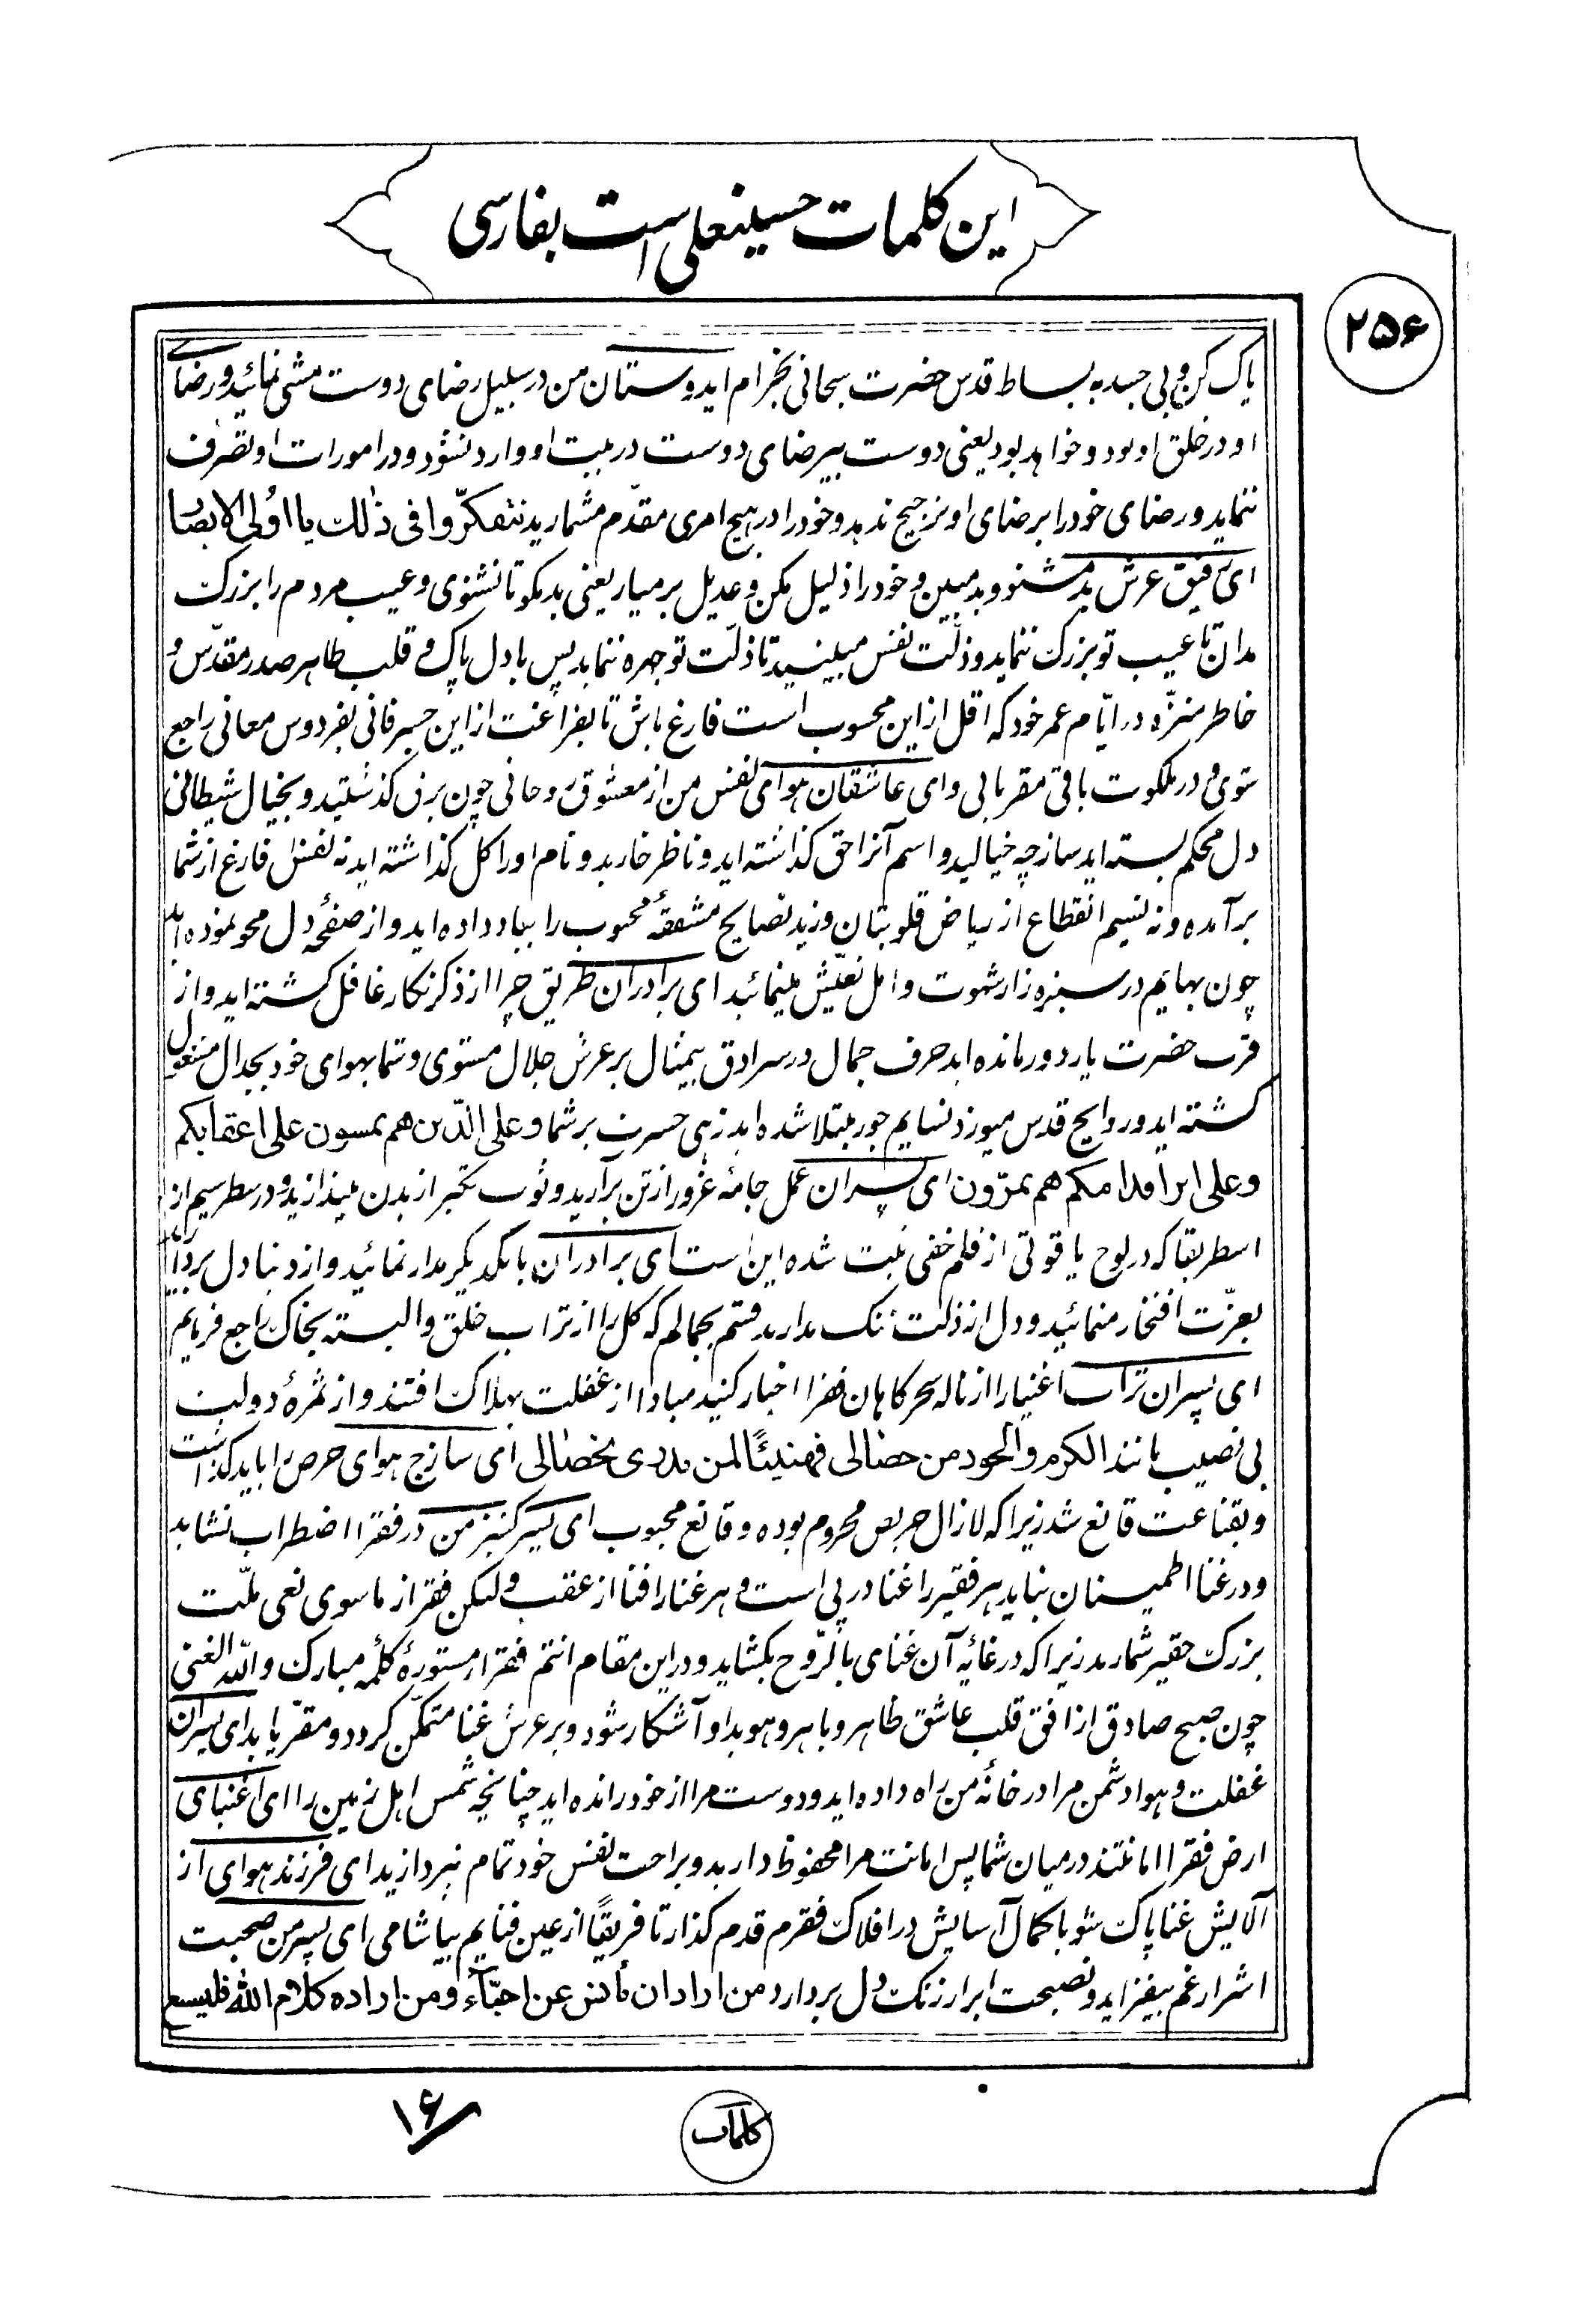 این کلمات حسینعلی است بفارسی
۲۵۶
پاک کن و بی جسد به بساط قدس حضرت سبحانی بخرام ایدوستان من در سبیل رضای دوست مشی نمائید و رضای
او در خلق او بود و خواهد بود یعنی دوست بیرضای دوست در بیت او وارد نشود و در امورات او تصرف
ننماید و رضای خود را بر رضای او ترجیح ندهد و خود را در هیچ امری مقدّم مشمارید نتفکرّوا فی ذٰلک یا اوُلی الابصار
ای رفیق عرش بد مشنو و بد مبین و خود را ذلیل مکن و عدیل بر میار یعنی بد مگو تا نشنوی و عیب مردم را بزرگ
مدان تا عیب تو بزرگ ننماید و ذلّت نفس مبینید تا ذلّت تو چهره ننماید پس با دل پاک و قلب طاهر صدر مقدّس و
خاطر منزّه در ایّام عمر خود که اقل از این محسوب است فارغ باش تا بفراغت از این جسر فانی بفردوس معانی راجع
شوی و در ملکوت باقی مقر یابی وای عاشقان هوای نفس من از معشوق روحانی چون برق گذشتید و بخیال شیطانی
دل محکم بسته اید ساز چه خیالید و اسم آنرا حق گذاشته اید و ناظر خارید و نام او را گل گذاشته اید نه نفس فارغ از شما
برآمده و نه نسیم انقطاع از ریاض قلوبتان وزید نصایح مشفقهٔ محبوب را بباد داده اید و از صفحهٔ دل محو نموده اید
چون بهایم در سبزه زار شهوت و امل تعیّش مینمائید ای برادران طریق چرا از ذکر نگار غافل گشته اید و از
قرب حضرت یار دور مانده اید صرف جمال در سرادق بیمثال بر عرش جلال مستوی و شما بهوای خود بجدال مشغول
گشته اید و روایح قدس میوزد نسایم جور مبتلا شده اید زهی حسرت بر شما و علی الّذین هم یمسون علی اعقابکم
و علی اثر اقدامکم هم یمرّون ای پسران عمل جامهٔ غرور از تن برآرید و ثوب تکبر از بدن بیندازید و در سطر سیم از
اسطر بقا که در لوح یاقوتی از قلم خفی ثبت شده این است ای برادران با یکدیگر مدارا نمائید و از دنیا دل بردارید
بعزّت افتخار منمائید و دل از ذلت ننگ مدارید قسم بجمالم که کل را از تراب خلق و البته بخاک راجع فرمایم
ای پسران تراب اغنیا را از ناله سحرگاهان فقرا اخبار کنید مبادا از غفلت بهلاکت افتند و از ثمرهٔ دولت
بی نصیب مانند الکرم والجود من خصالی فهنیئًا لمن بخصالی ای سازج هوای حرص را باید گذاشت
و بقناعت قانع شد زیرا که لازال حریص محروم بوده و قانع محبوب ای پسر کنیز من در فقر اضطراب نشاید
و در غنا اطمینان نباید هر فقیر را غنا در پی است و هر غنا را فنا از عقب و لیکن فقر از ماسوی نعمی ملّت
بزرگ حقیر شمارید زیرا که در غائهٔ آن غنای بالرّوح بگشاید و در این مقام انتم فقراء مستورهٔ کلمهٔ مبارک والله الغنی
چون صبح صادق از افق قلب عاشق ظاهر و باهر و هویدا و آشکار شود و بر عرش غنا متمکّن گردد و مقرّ یابد ای پسران
غفلت و هوا دشمن مرا در خانهٔ من راه داده اید و دوست مرا از خود رانده اید چنانچه شمس اهل زمین را ای اغنیای
ارض فقرا امانتند در میان شما پس امانت مرا محفوظ دارید و براحت نفس خود تمام نپردازید ای فرزند هوای از
آلایش غنا پاک شو با کمال آسایش در افلاک فقرم قدم گذار تا فریقًا از عین فنایم بیاشامی ای پسر من صحبت
اشرار غم بیفزاید و نصیحت ابرار زنگ دل بردارد من اراد ان یأنس عن احبّآء و من اراده کلام الله فلیسمع
کلمات
۱۶